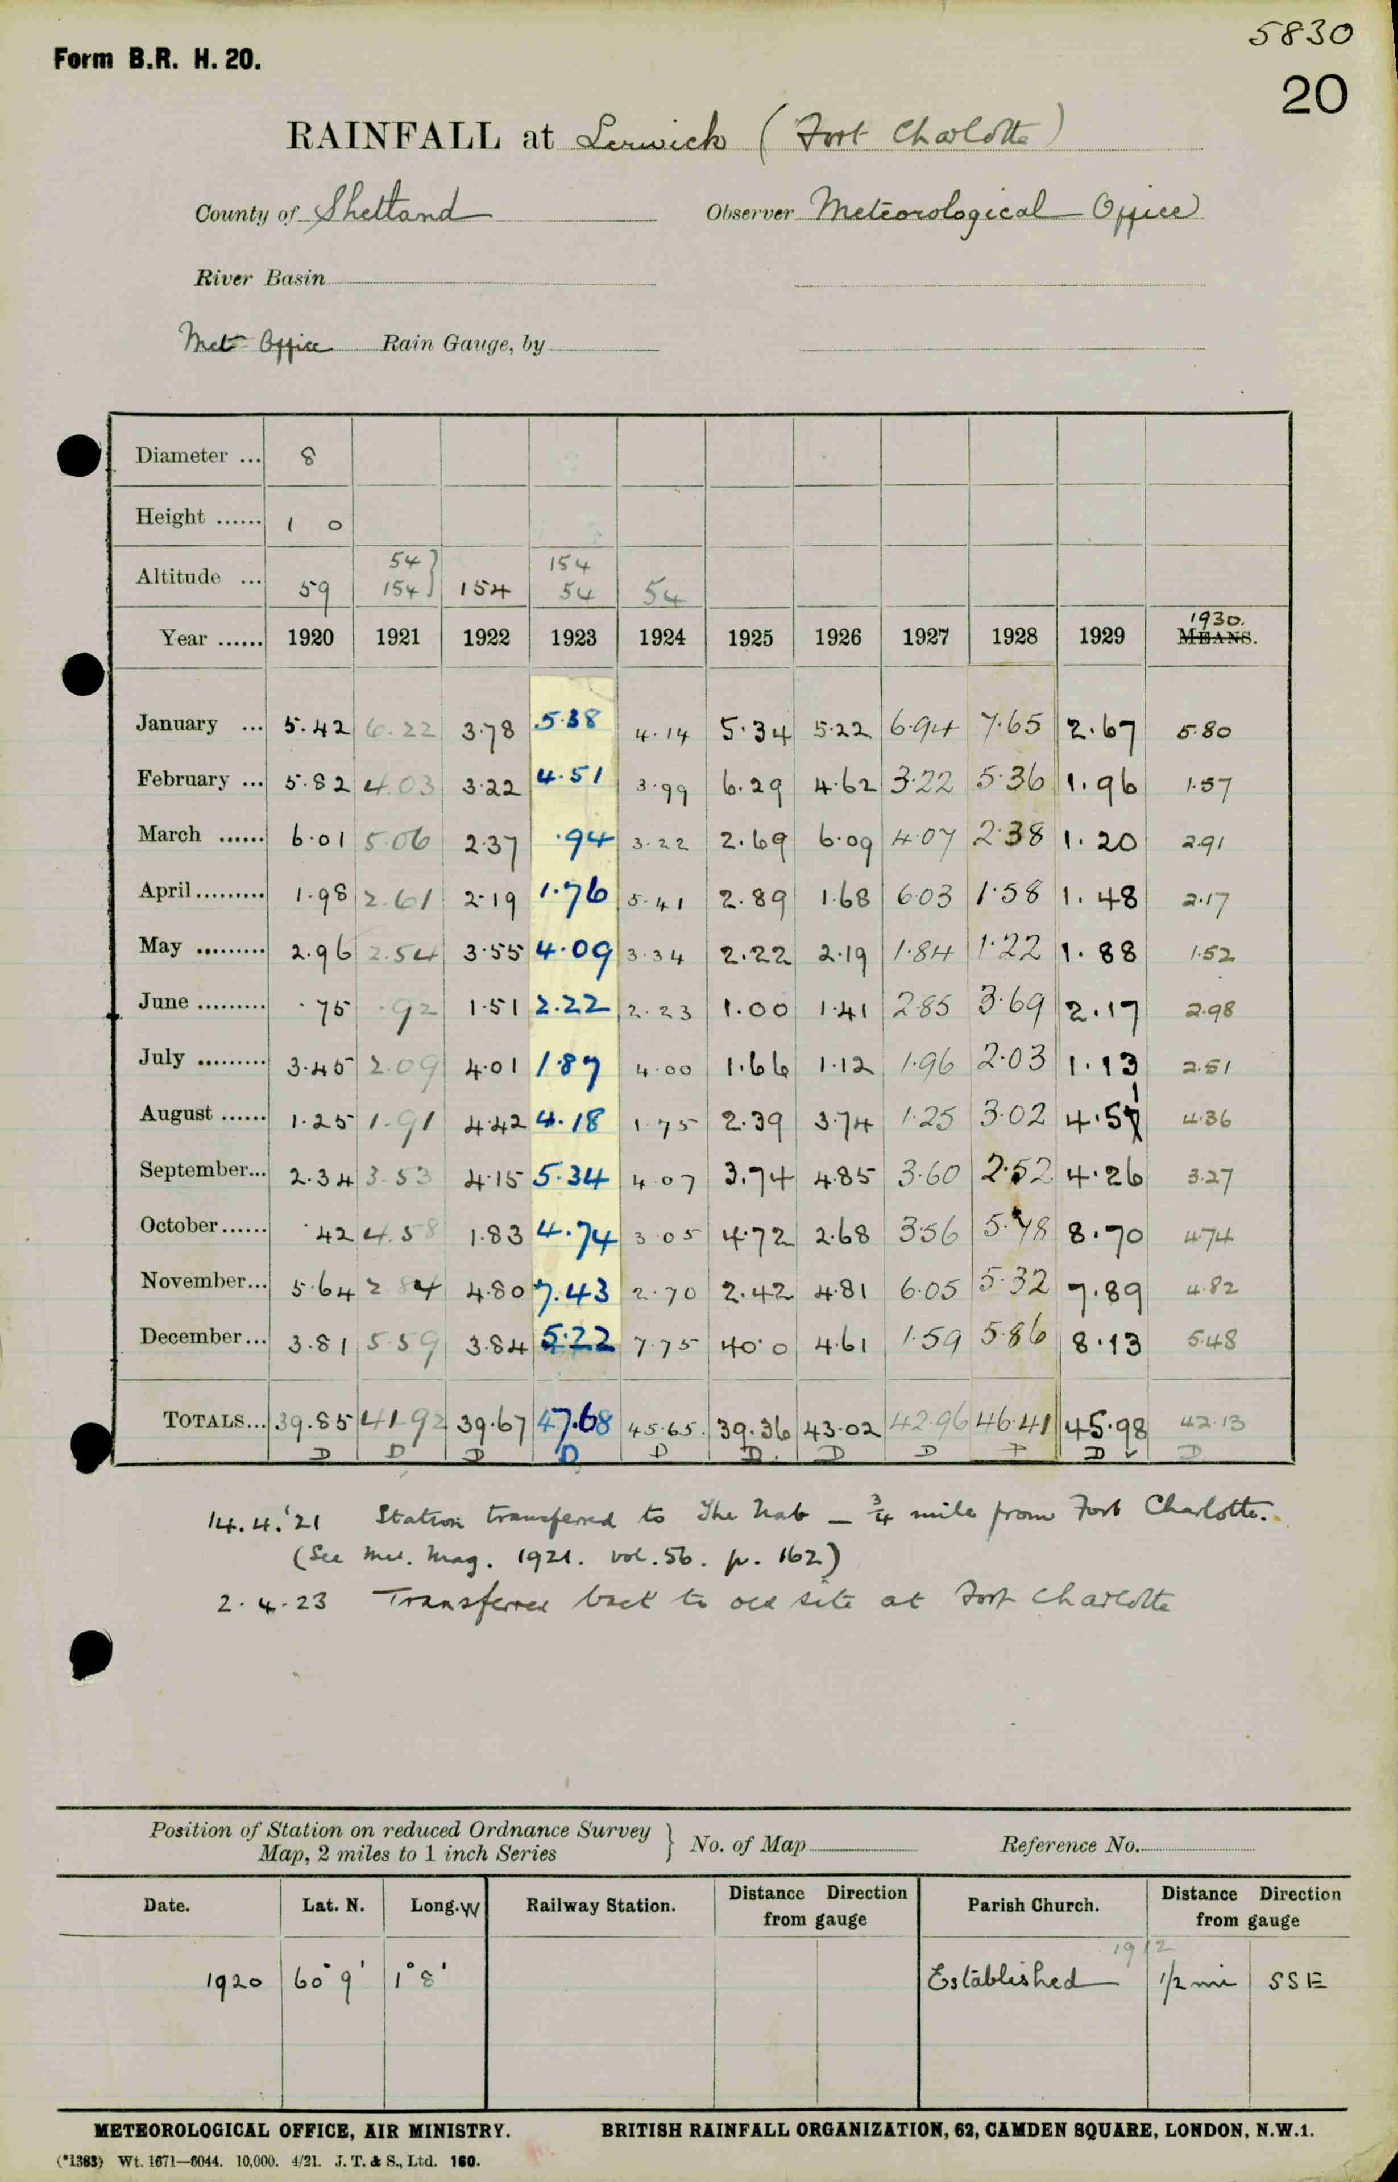 5830
Form B.R. H. 20.
20
RAINFALL at Lerwick (Fort Charlotte)
County of Shetland Observer Meteorological Office
River Basin
Met Office Rain Gauge, by
Diameter ... 8
Height ...... 1 0
54 } 154
Altitude ... 59 154 } 154 54 54
1930.
Year ...... 1920 1921 1922 1923 1924 1925 1926 1927 1928 1929 MEANS.
January ... 5.42 6.22 3.78 5.38 4.14 5.34 5.22 6.94 7.65 2.67 5.80
February ... 5.82 4.03 3.22 4.51 3.99 6.29 4.62 3.22 5.36 1.96 1.57
March ...... 6.01 5.06 2.37 .94 3.22 2.69 6.09 4.07 2.38 1.20 2.91
April ......... 1.98 2.61 2.19 1.76 5.41 2.89 1.68 6.03 1.58 1.48 2.17
May ......... 2.96 2.54 3.55 4.09 3.34 2.22 2.19 1.84 1.22 1.88 1.52
June ......... .75 .92 1.51 2.22 2.23 1.00 1.41 2.85 3.69 2.17 2.98
July ......... 3.45 2.09 4.01 1.87 4.00 1.66 1.12 1.96 2.03 1.13 2.51
August ...... 1.25 1.91 4.42 4.18 1.75 2.39 3.74 1.25 3.02 4.51 4.36
September... 2.34 3.53 4.15 5.34 4.07 3.74 4.85 3.60 2.52 4.26 3.27
October...... .42 4.58 1.83 4.74 3.05 4.72 2.68 3.56 5.78 8.70 4.74
November... 5.64 2.84 4.80 7.43 2.70 2.42 4.81 6.05 5.32 7.89 4.82
December... 3.81 5.59 3.84 5.22 7.75 40.0 4.61 1.59 5.86 8.13 5.48
TOTALS... 39.85 41.92 39.67 47.68 45.65 39.36 43.02 42.96 46.41 45.98 42.13
D D D D D D D D D D D
14.4.'21 Station transferred to The Nab – 3/4 mile from Fort Charlotte.
(See Met. Mag. 1921. vol. 56. p. 162)
2.4.23 Transferred back to old site at Fort Charlotte
Position of Station on reduced Ordnance Survey
Map, 2 miles to 1 inch Series } No. of Map Reference No.
Date. Lat. N. Long. W Railway Station. Distance Direction from gauge Parish Church. Distance Direction from gauge
1912
1920 60° 9' 1° 8' Established 1/2 mi SSE
METEOROLOGICAL OFFICE, AIR MINISTRY. BRITISH RAINFALL ORGANIZATION, 62, CAMDEN SQUARE, LONDON, N.W.1.
(*1383) Wt. 1671—6044. 10,000. 4/21. J. T. & S., Ltd. 160.